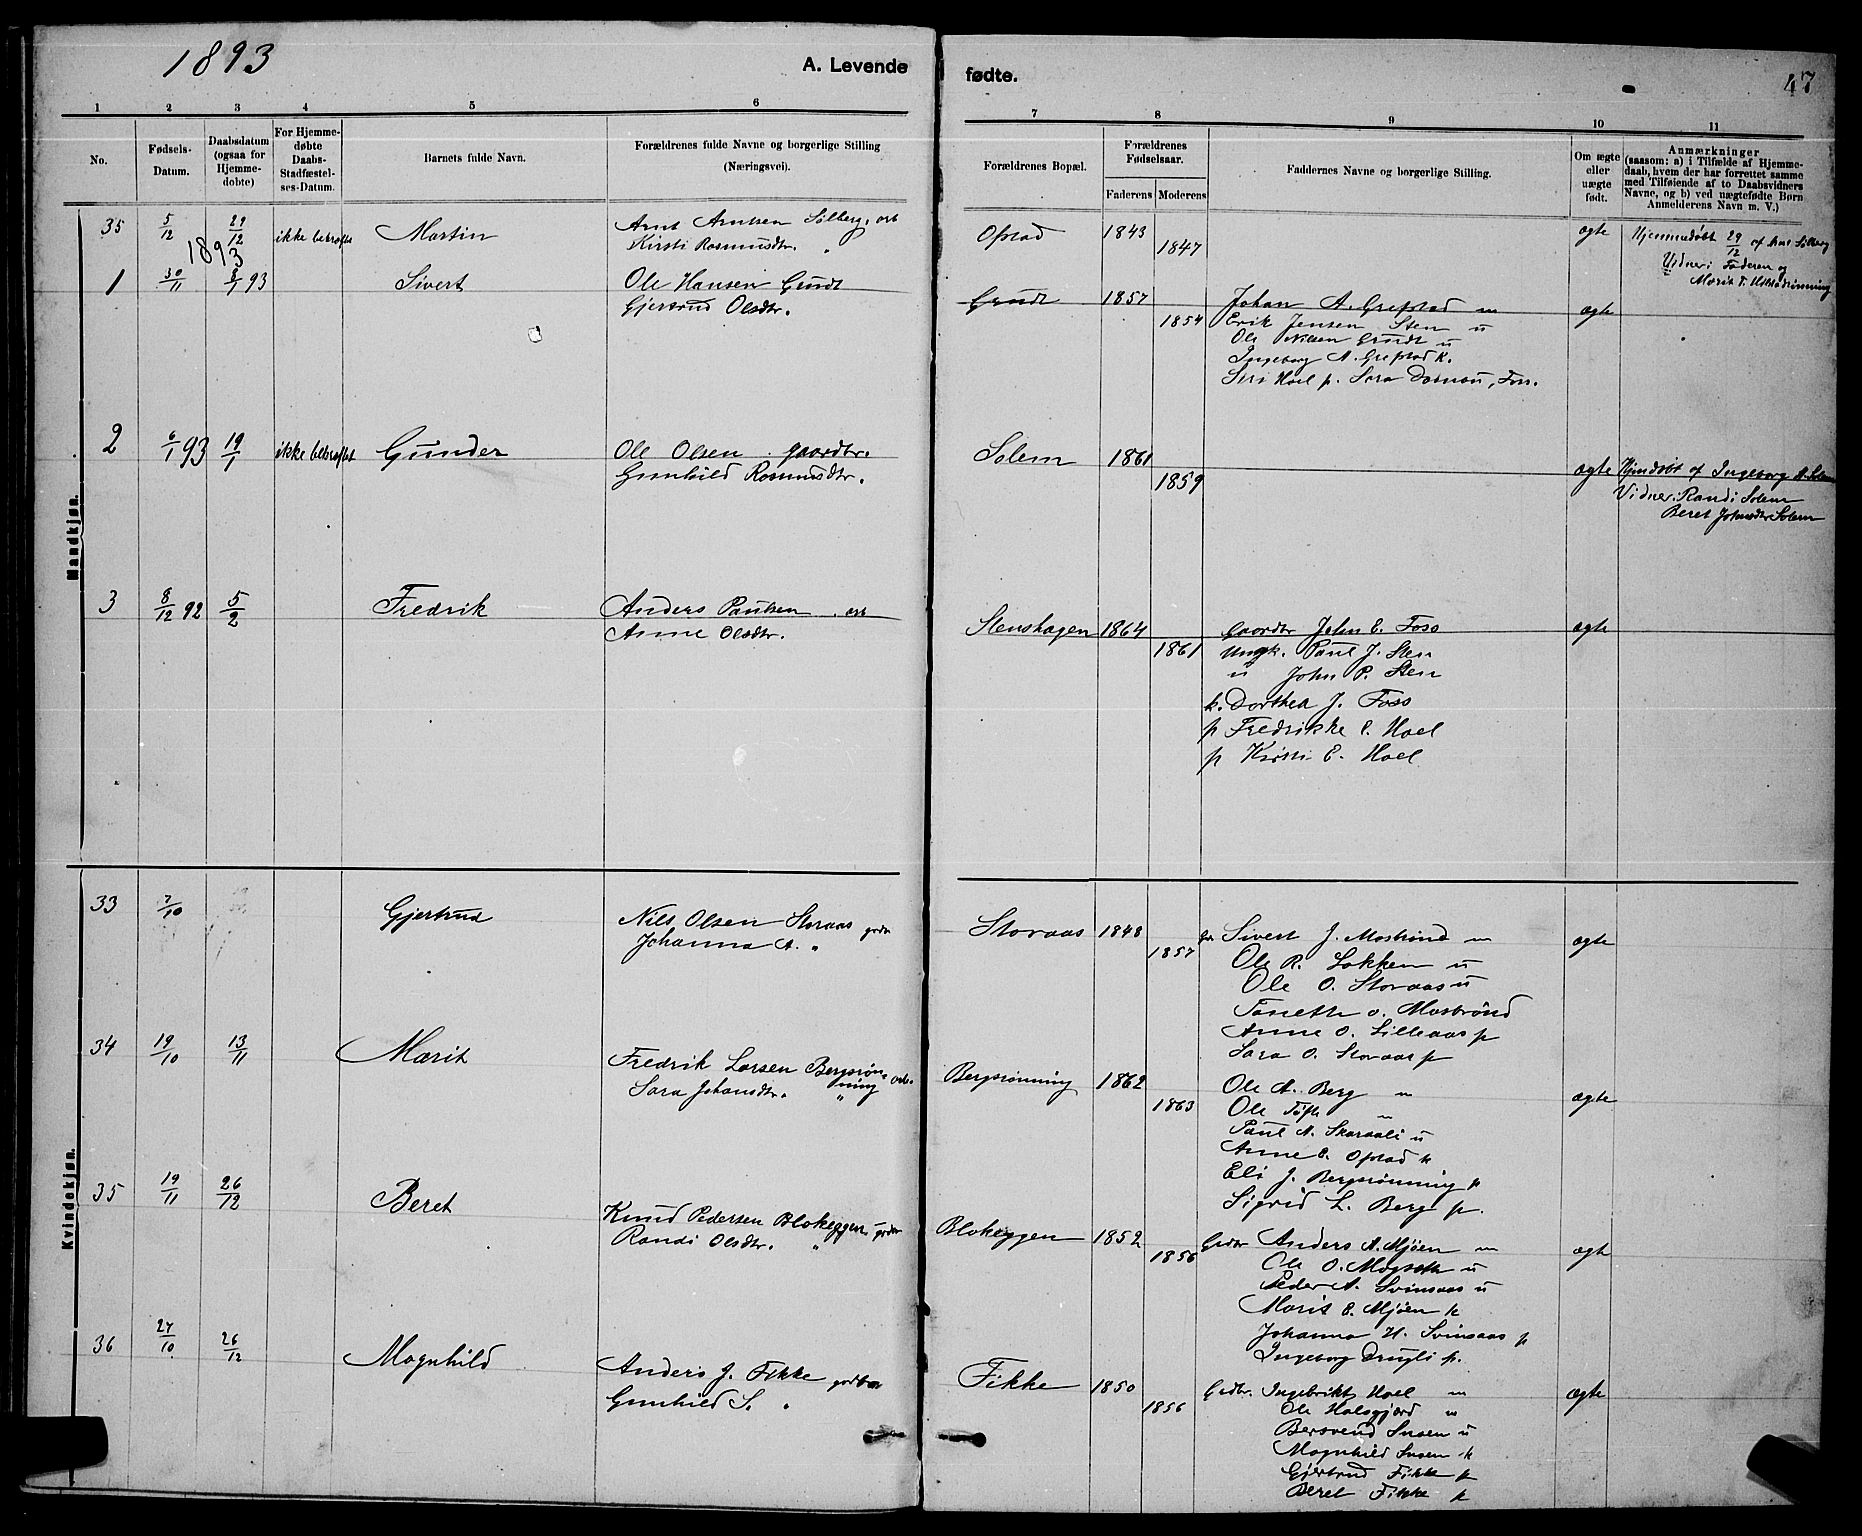 1893
A. Levende
fødte.
47
1 2 3 4 5 6 7 8 9 10 11
No.
Fødsels-
Datum.
Daabsdatum
(ogsaa for
Hjemme-
døbte)
For Hjemme-
døbte
Daabs-
Stadfæstel-
ses-Datum.
Barnets fulde Navn.
Forældrenes fulde Navne og borgerlige Stilling
(Næringsvei).
Forældrenes Bopæl.
Forældrenes
Fødselsaar.
Faderens
Moderens
Faddernes Navne og borgerlige Stilling.
Om ægte
eller
uægte
født.
Anmærkninger
(saasom: a) i Tilfælde af Hjemme-
daab, hvem der har forrettet samme
med Tilføiende af to Daabsvidners
Navne, og b) ved uægtefødte Børn
Anmelderens Navn m. V.)
Mandkjøn.
35 5/12 29/12 ikke bekræftet Martin
Arnt Arntsen Solberg, arb
Kirsti Rasmusdtr. "
Opstad 1843
1847
ægte
Hjemmedøbt 29/12 af
Vidner: Faderen og
Marit T.
1893
1 30/11 8/1 93 Sivert
Ole Hansen Grudt
Gjertrud Olsdtr.
Grudt 1857
1854
Johan A. Grefstad m
Erik Jensen Sten u
Ole Nilsen Grudt u
Ingeborg A. Grefstad k.
Siri Hoel p. Sara
ægte
2 6/1 93 19/1 ikke bekræftet Gunder
Ole Olsen gaardbr.
Gunhild Rasmusdtr.
Solem 1861
1859
ægte
Hjemdøbt af Ingeborg A. Solem
Vidner: Randi Solem
Beret Johnsdtr Solem
3 8/12 92 5/2 Fredrik
Anders Paulsen arb
Anne Olsdtr.
Stenshagen 1864
1861
Gaardbr John E. Foss
Ungk. Paul J. Sten
u John P. Sten
k. Dorthea J. Foss
p Fredrikke E. Hoel
p Kirsti E. Hoel
ægte
Kvindekjøn.
33 7/10 Gjertrud
Nils Olsen Storaas grdbr
Johanna A. "
Storaas 1848
1857
Sivert J. Mostrønd m
Ole R. Løkken u
Ole O. Storaas u
Tanette O. Mostrønd
Anne O. Lilleaas p
Sara O. Storaas p
ægte
34 19/10 13/11 Marit
Fredrik Larsen Bergsrøn-
ning arb.
Sara Johansdtr. "
Bergsrønning 1862
1863
Ole A. Berg m
Ole Tøfte m
Paul A. Skaraali u
Anne E. Opstad k
Eli J. Bergsrønning p
Sigrid L. Berg p.
ægte
35 19/11 26/12 Beret
Knud Pedersen Blokeggen grdbr
Randi Olsdtr. "
Blokeggen 1852
1856
Grdbr Anders A. Mjøen m
Ole O. Mogseth u
Peder A. Svinsaas u
Marit E. Mjøen k
Johanna H. Svinsaas p
Ingeborg Drugli p.
ægte
36 27/10 26/12 Magnhild
Anders J. Fikke grdbr
Gunhild S. "
Fikke 1850
1856
Grdbr. Ingebrikt Hoel m
Ole Halsgjerd m
Bersvend Snoen u
Magnhild Snoen k
Gjertrud Fikke p
Beret Fikke p
ægte